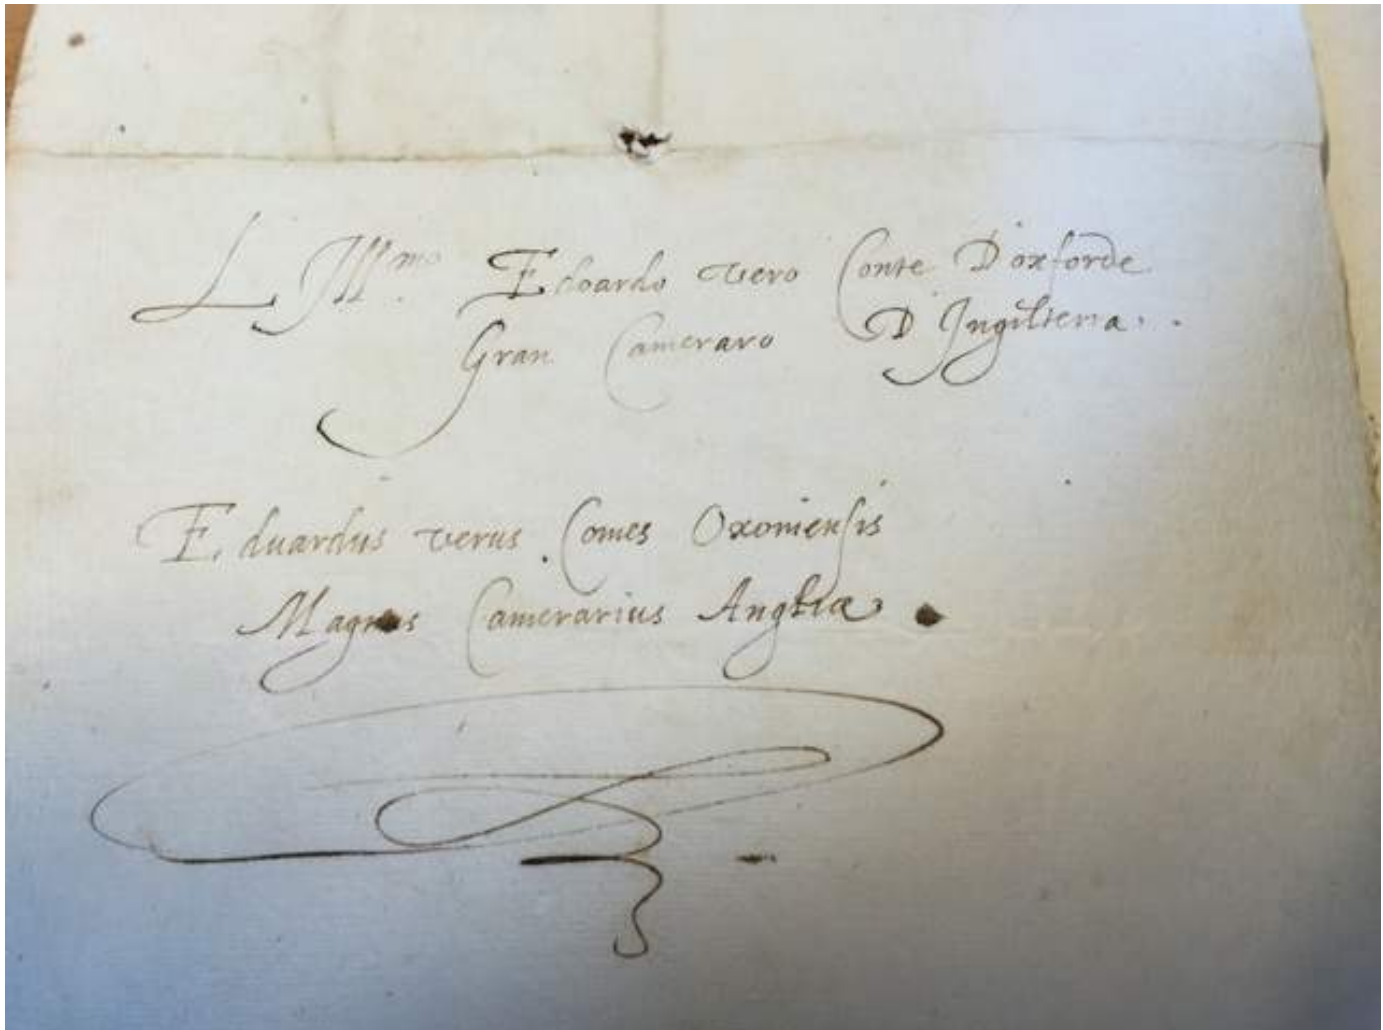 L Ill.mo Edoardo vero Conte D'oxforde
Gran Cameraro D'Ingilterra.
Eduardus verus Comes Oxoniensis
Magnus Camerarius Angliæ